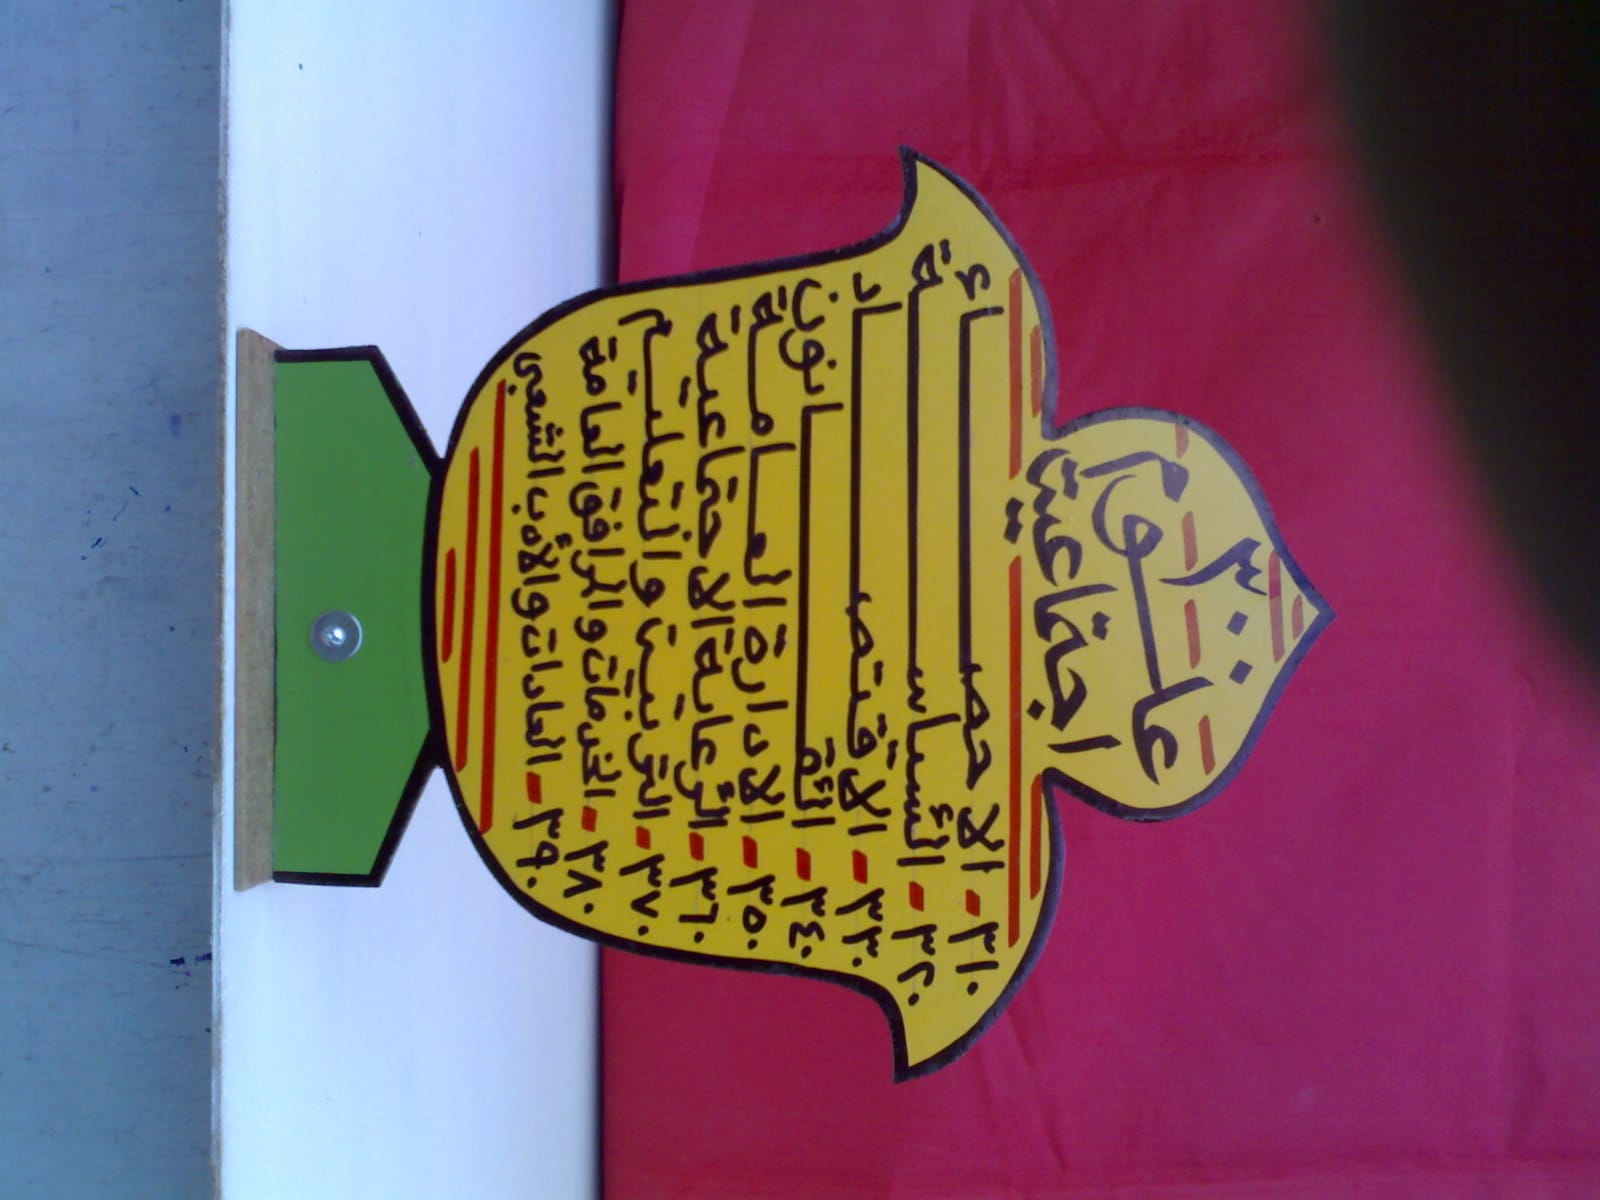 ٣٠٠
علوم
اجتماعية
٣١٠ - الاحصاء
٣٢٠ - السياسة
٣٣٠ - الاقتصاد
٣٤٠ - القانون
٣٥٠ - الادارة العامة
٣٦٠ - الرعاية الاجتماعية
٣٧٠ - التربية والتعليم
٣٨٠ - الخدمات والمرافق العامة
٣٩٠ - العادات والأدب الشعبى